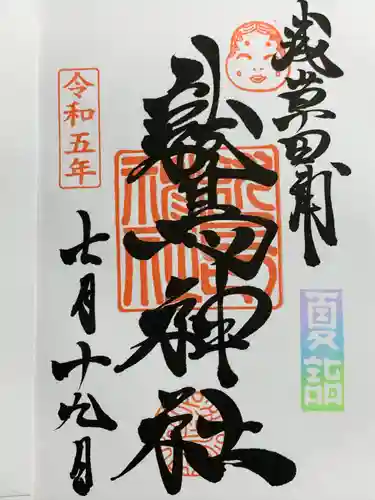 浅草田甫
鷲神社
令和五年
七月十九月
夏詣